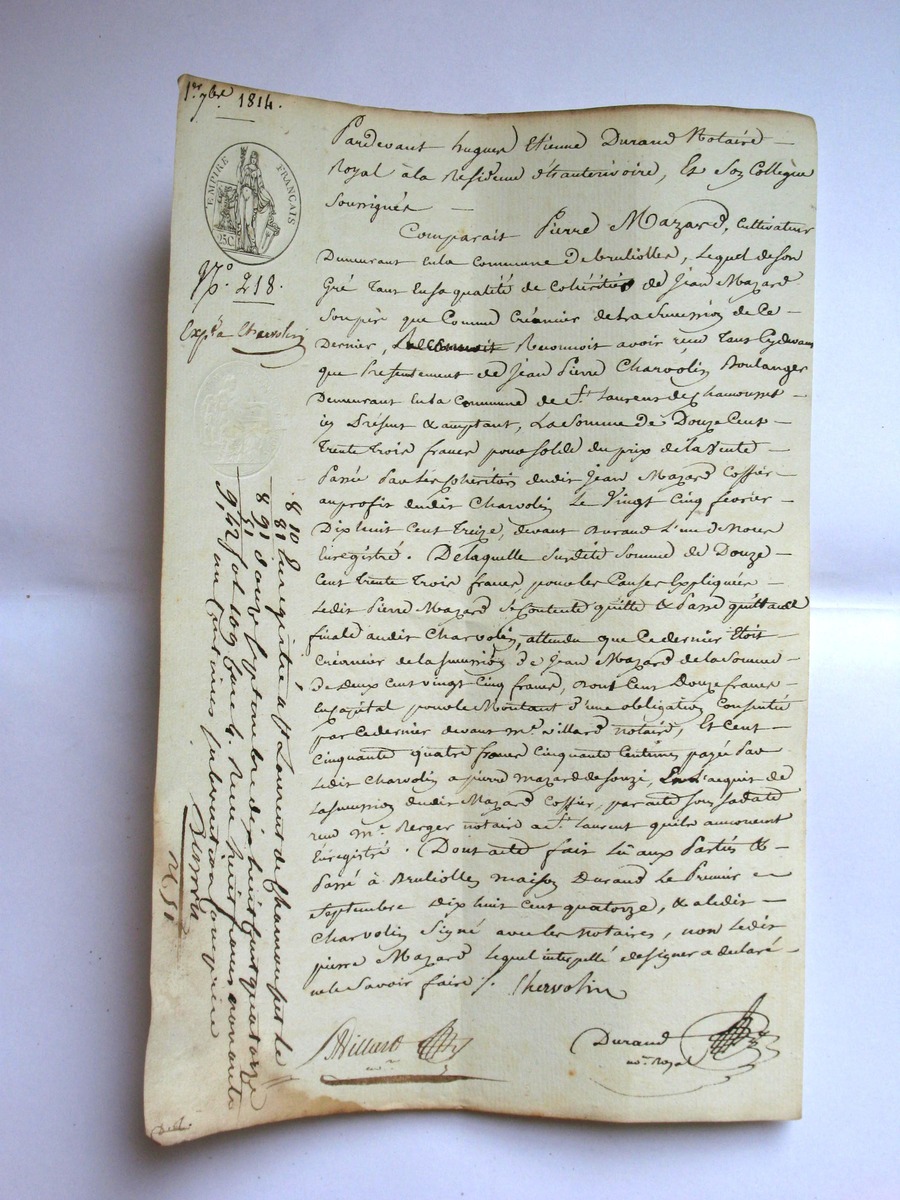 1er 7bre 1814.
EMPIRE FRANÇAIS
25C
N.o 218.
Expé a Charvolin
Pardevant hugues Etienne Durand Notaire
Royal à la Residence d'hauterivoire, Et Son Collègue
Soussignés
Comparait Pierre Mazard, Cultivateur
Demeurant en la Commune de bruliolles, lequel de son
Gré tant en sa qualité de Cohéritier de Jean Mazard
Son père que Comme Créancier de la Succession de Ce
Dernier, Reconnoit avoir reçu tant Cydevant
que Presentement de Jean Pierre Charvolin Boulanger
Demeurant en la Commune de St Laurent de Chamousset
icy Présent & acceptant, La Somme de Douze Cent
trente trois francs pour solde du prix de la Vente
Passée Par les Cohéritiers dudit Jean Mazard Coffier
au profit dudit Charvolin Le Vingt Cinq fevrier
Dix huit Cent Treize, devant Durand L'un de Nous
Enregistré. De laquelle Susdite Somme de Douze
Cent trente trois francs, pour les Causes Expliquées
Ledit Pierre Mazard Se Contente quitte & Passe quittance
finale audit Charvolin, attendu que Ce dernier Etoit
Créancier de la Succession de Jean Mazard de la Somme
de Deux Cent vingt Cinq francs, Cent Douze francs
En Capital pour le Montant d'une obligation Consentie
par Ce dernier devant Me Villard notaire, Et Cent
Cinquante quatre francs Cinquante Centimes payée Par
Ledit Charvolin a pierre mazard de Souzi, En L'acquit de
La Succession dudit Mazard Coffier, par acte Sous Sa date
reçu Me Berger notaire a St Laurent quils annoncent
Enregistré. Dont acte fait Lû aux Parties &
Passé à Brulliolles maison Durand Le Premier
Septembre dix huit Cent quatorze, & a Ledit
Charvolin Signé avec les notaires, non Ledit
pierre Mazard Lequel interpellé de signer a declaré
ne le Savoir faire /. Chervolin
Villard
Durand
no. Royal
Enregistré à St Laurent de Chamousset le
douze Septembre dix huit cent quatorze
fol 109 Reçu huit francs